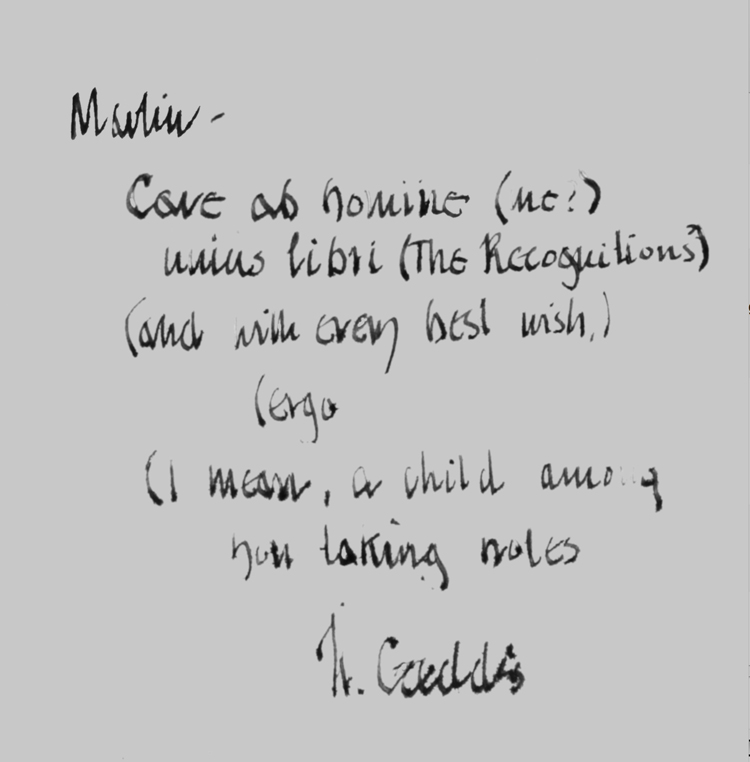 Martin -
Cave ab homine (me?)
unius libri (The Recognitions?)
(and with every best wish,)
(ergo
(I mean, a child among
you taking notes
W. Gaddis